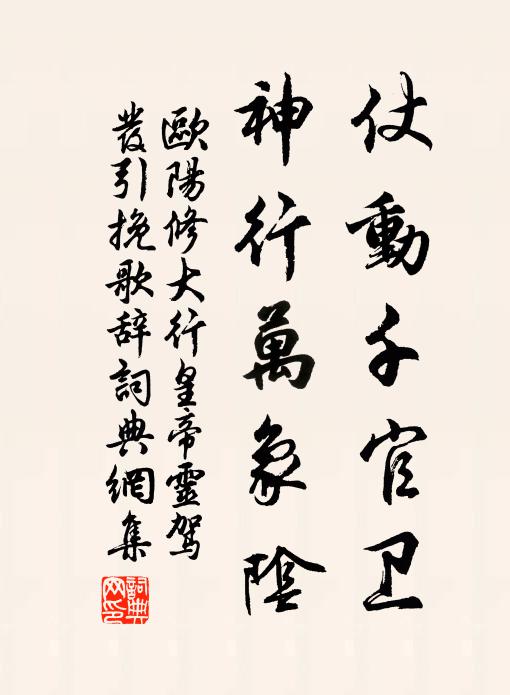 仗動千官卫
神行萬象陰
歐陽修大行皇帝靈駕
發引挽歌辞詞典網集